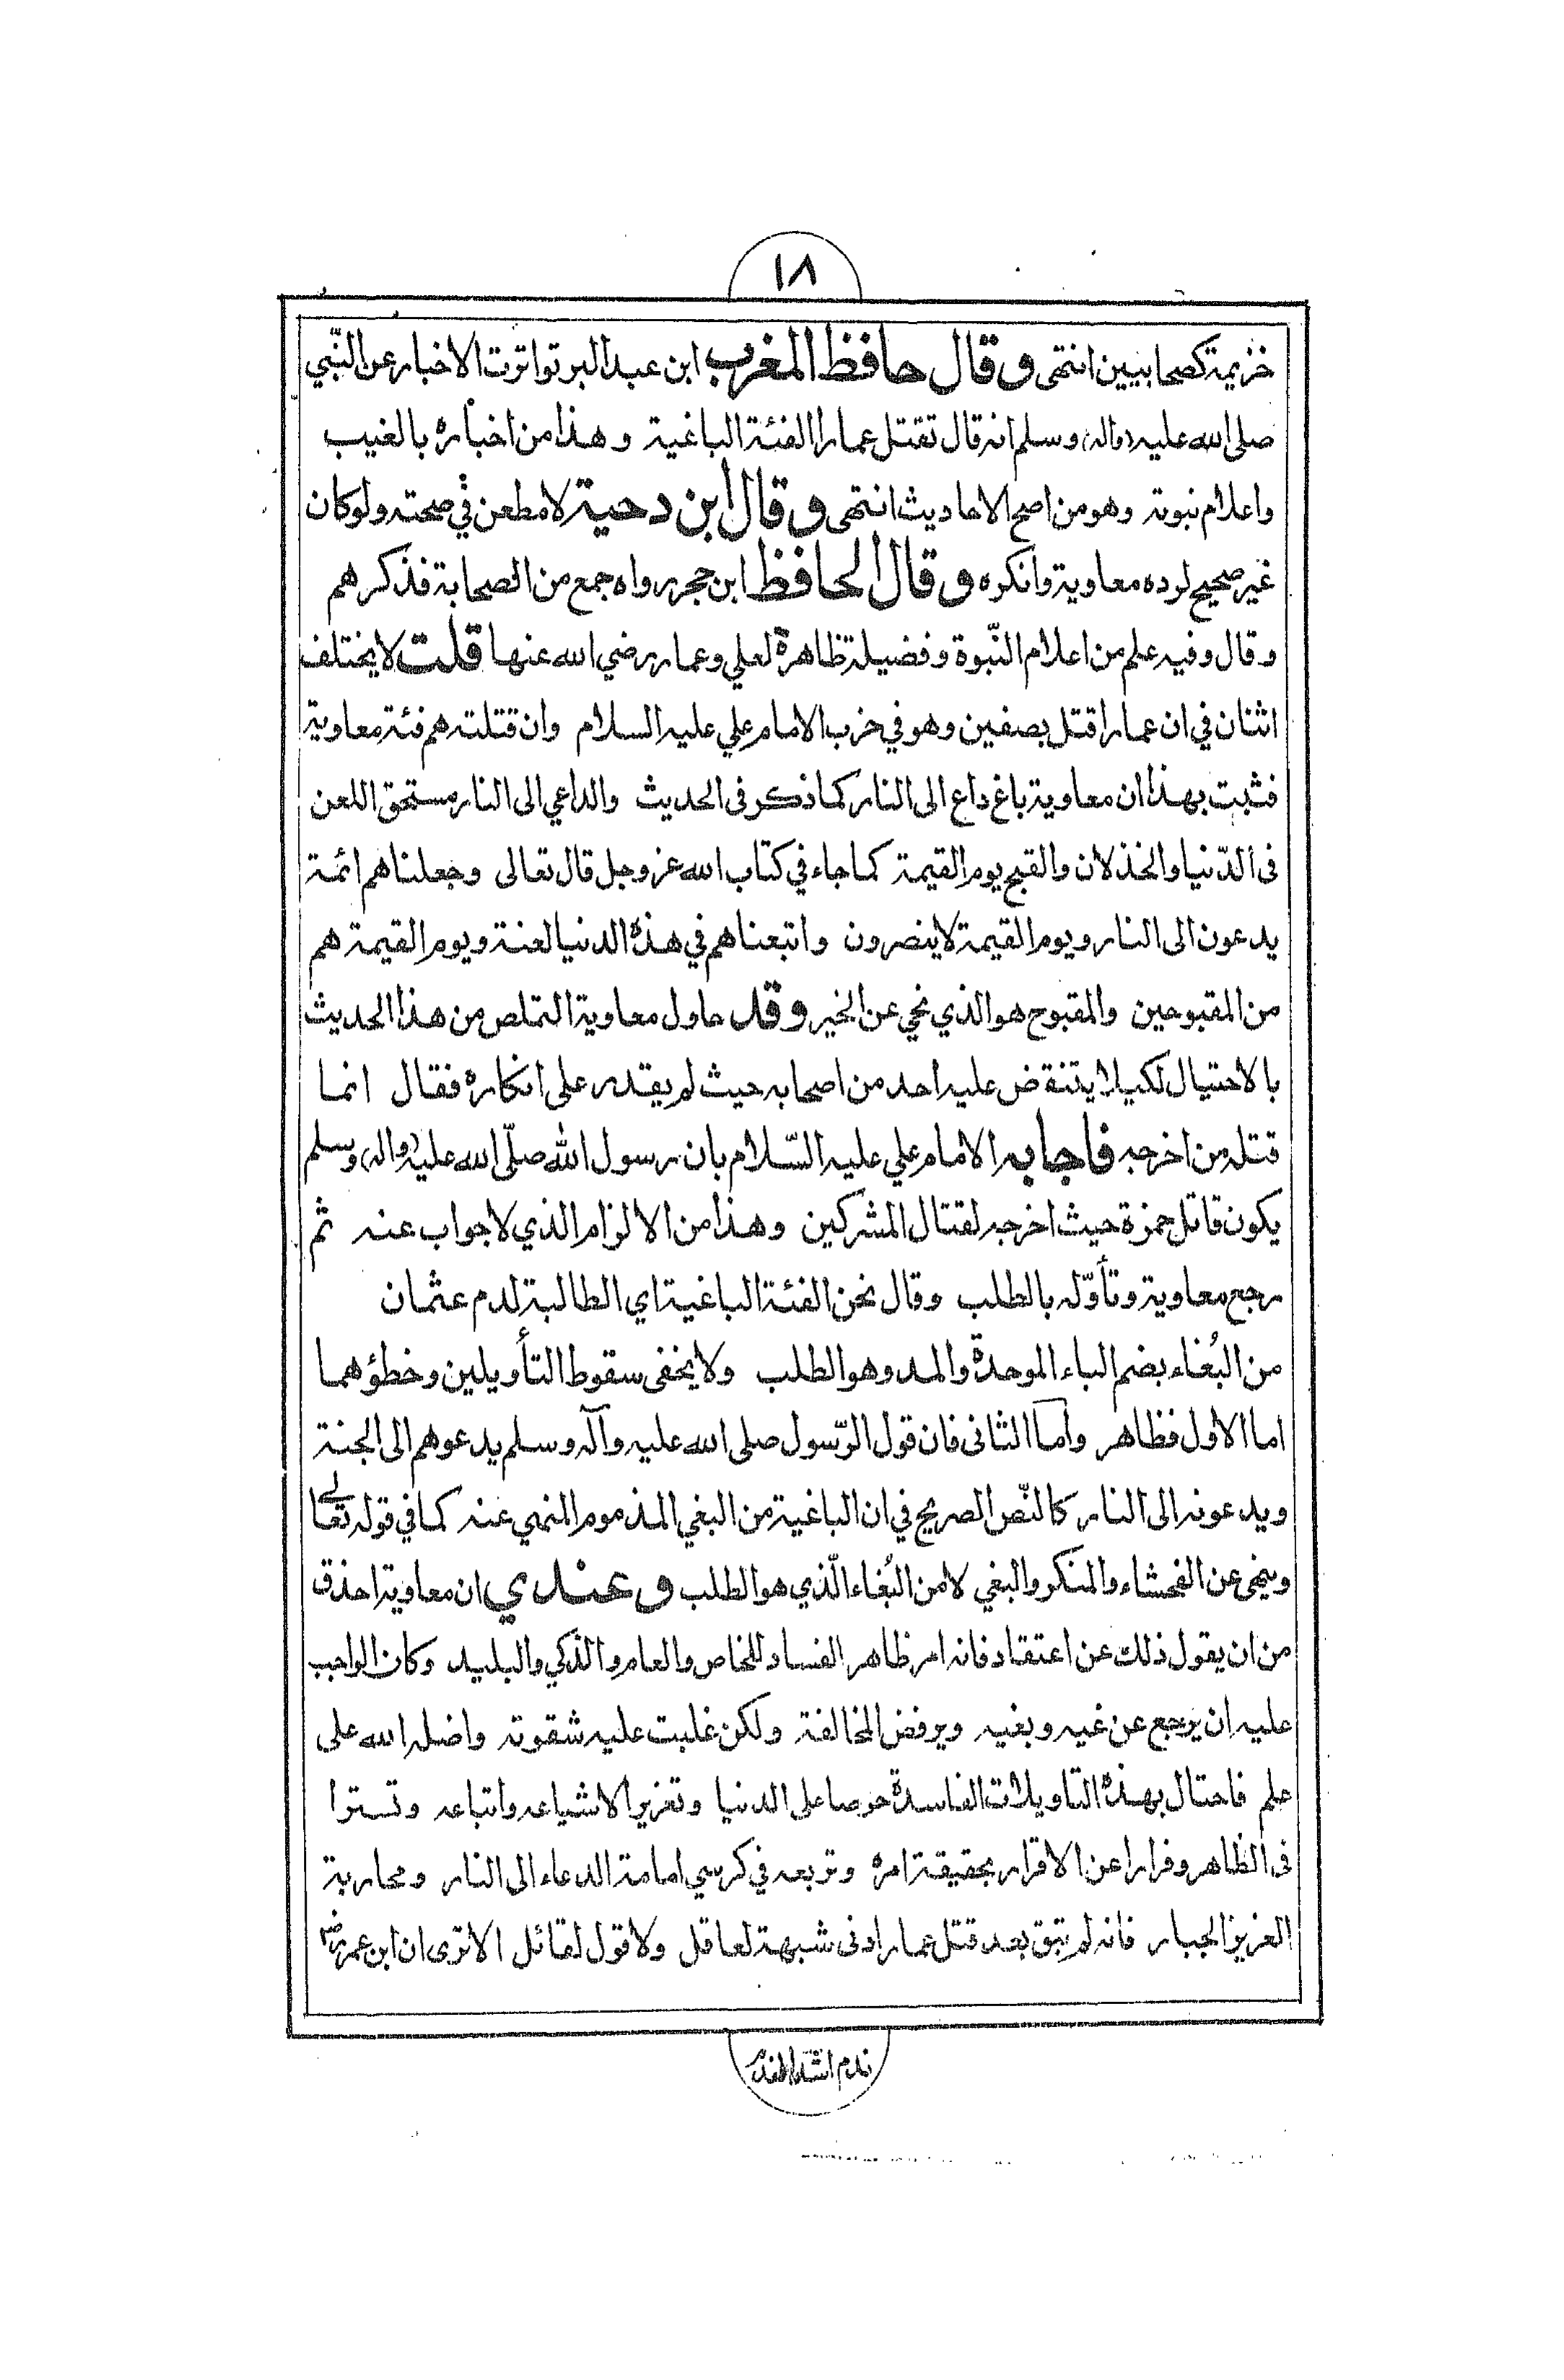 ١٨
خزيمة كصحابيين انتهى وقال حافظ المغرب ابن عبد البر تواترت الاخبار عن النّبي
صلى الله عليه (واله) وسلم انه قال تقتل عمارا الفئة الباغية وهذا من اخباره بالغيب
واعلام نبوته وهو من اصح الاحاديث انتهى وقال ابن دحية لا مطعن في صحته ولو كان
غير صحيح لرده معاوية وانكره وقال الحافظ ابن حجر رواه جمع من الصحابة فذكرهم
وقال وفيه علم من اعلام النّبوة وفضيلة ظاهرة لعلي وعمار رضي الله عنهما قلت لا يختلف
اثنان في ان عمارا قتل بصفين وهو في حزب الامام علي عليه السلام وان قتلته هم فئة معاوية
فثبت بهذا ان معاوية باغ داع الى النار كما ذكر فى الحديث والداعي الى النار مستحق اللعن
فى الدّنيا والخذلان والقبح يوم القيمة كما جاء في كتاب الله عز وجل قال تعالى وجعلناهم ائمة
يدعون الى النار ويوم القيمة لا ينصرون واتبعناهم في هذه الدنيا لعنة ويوم القيمة هم
من المقبوحين والمقبوح هو الذي نحي عن الخير وقد حاول معاوية التملص من هذا الحديث
بالاحتيال لكيلا ينتقض عليه احد من اصحابه حيث لم يقدر على انكاره فقال انما
قتله من اخرجه فاجابه الامام علي عليه السّلام بان رسول الله صلّى الله عليه (واله) وسلم
يكون قاتل حمزة حيث اخرجه لقتال المشركين وهذا من الالزام الذي لا جواب عنه ثم
رجع معاوية وتأوّله بالطلب وقال نحن الفئة الباغية اي الطالبة لدم عثمان
من البُغاء بضم الباء الموحدة والمد وهو الطلب ولا يخفى سقوط التأويلين وخطؤهما
اما الاول فظاهر وأما الثانى فان قول الرّسول صلى الله عليه وآله وسلم يدعوهم الى الجنة
ويدعونه الى النار كالنّص الصريح في ان الباغية من البغي المذموم المنهي عنه كما في قوله تعالى
وينهى عن الفحشاء والمنكر والبغي لا من البُغاء الّذي هو الطلب وعندي ان معاوية احذق
من ان يقول ذلك عن اعتقاد فانه امر ظاهر الفساد للخاص والعام والذكي والبليد وكان الواجب
عليه ان يرجع عن غيه وبغيه ويرفض المخالفة ولكن غلبت عليه شقوته واضله الله على
علم فاحتال بهذه التاويلات الفاسدة حرصا على الدنيا وتغزيرا لاشياعه واتباعه وتسترا
فى الظاهر وفرارا عن الاقرار بحقيقة امره وتربعه في كرسي امامة الدعاء الى النار ومحاربة
العزيز الجبار فانه لم تبق بعد قتل عمار ادنى شبهة لعاقل ولا قول لقائل الا ترى ان ابن عمر رض
ندم اشد الندم